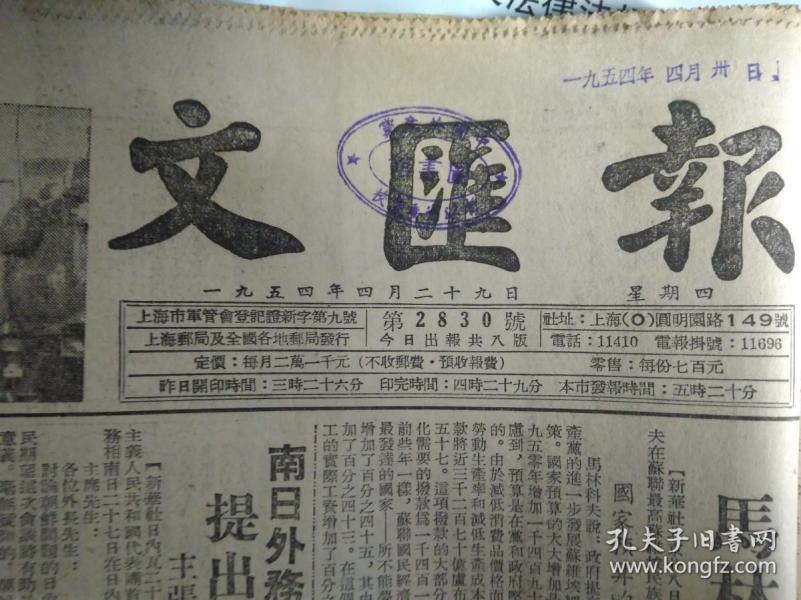 一九五四年四月卅日
文匯報
圖書館
一九五四年四月二十九日 星期四
上海市軍管會登記證新字第九號
上海郵局及全國各地郵局發行
第2830號
今日出報共八版
社址：上海(0)圓明園路149號
電話：11410 電報掛號：11696
定價：每月二萬一千元（不收郵費·預收報費）
零售：每份七百元
昨日開印時間：三時二十六分 印完時間：四時二十九分 本市發報時間：五時二十分
馬林
國家
【新華社
夫在蘇聯最高
馬林科夫說：政府提
產黨的進一步發展蘇維埃
策。國家預算的大大增加
九五零年增加一千四百九十
慮到，預算是在黨和政府堅
的。由於減低消費品價格而
勞動生產率和減低生產成本
款將近三千二百七十億盧布
五十七。這項撥款的大部分
化需要的撥款為一千四百一
前些年一樣，蘇聯國民經濟
最發達的國家——所不能
增加了百分之四十五，其中
加了百分之四十三。在這個
工的實際工資增加了百分之
南日外務
提出
主張
【新華社日內瓦二十
主義人民共和國代表團首
務相南日二十七日在日內
主席先生：
各位外長先生：
討論朝鮮問題的日
民期望這次會議將有助
意義。毫無疑問的，關
孔夫子旧书网
book.kongfz.com